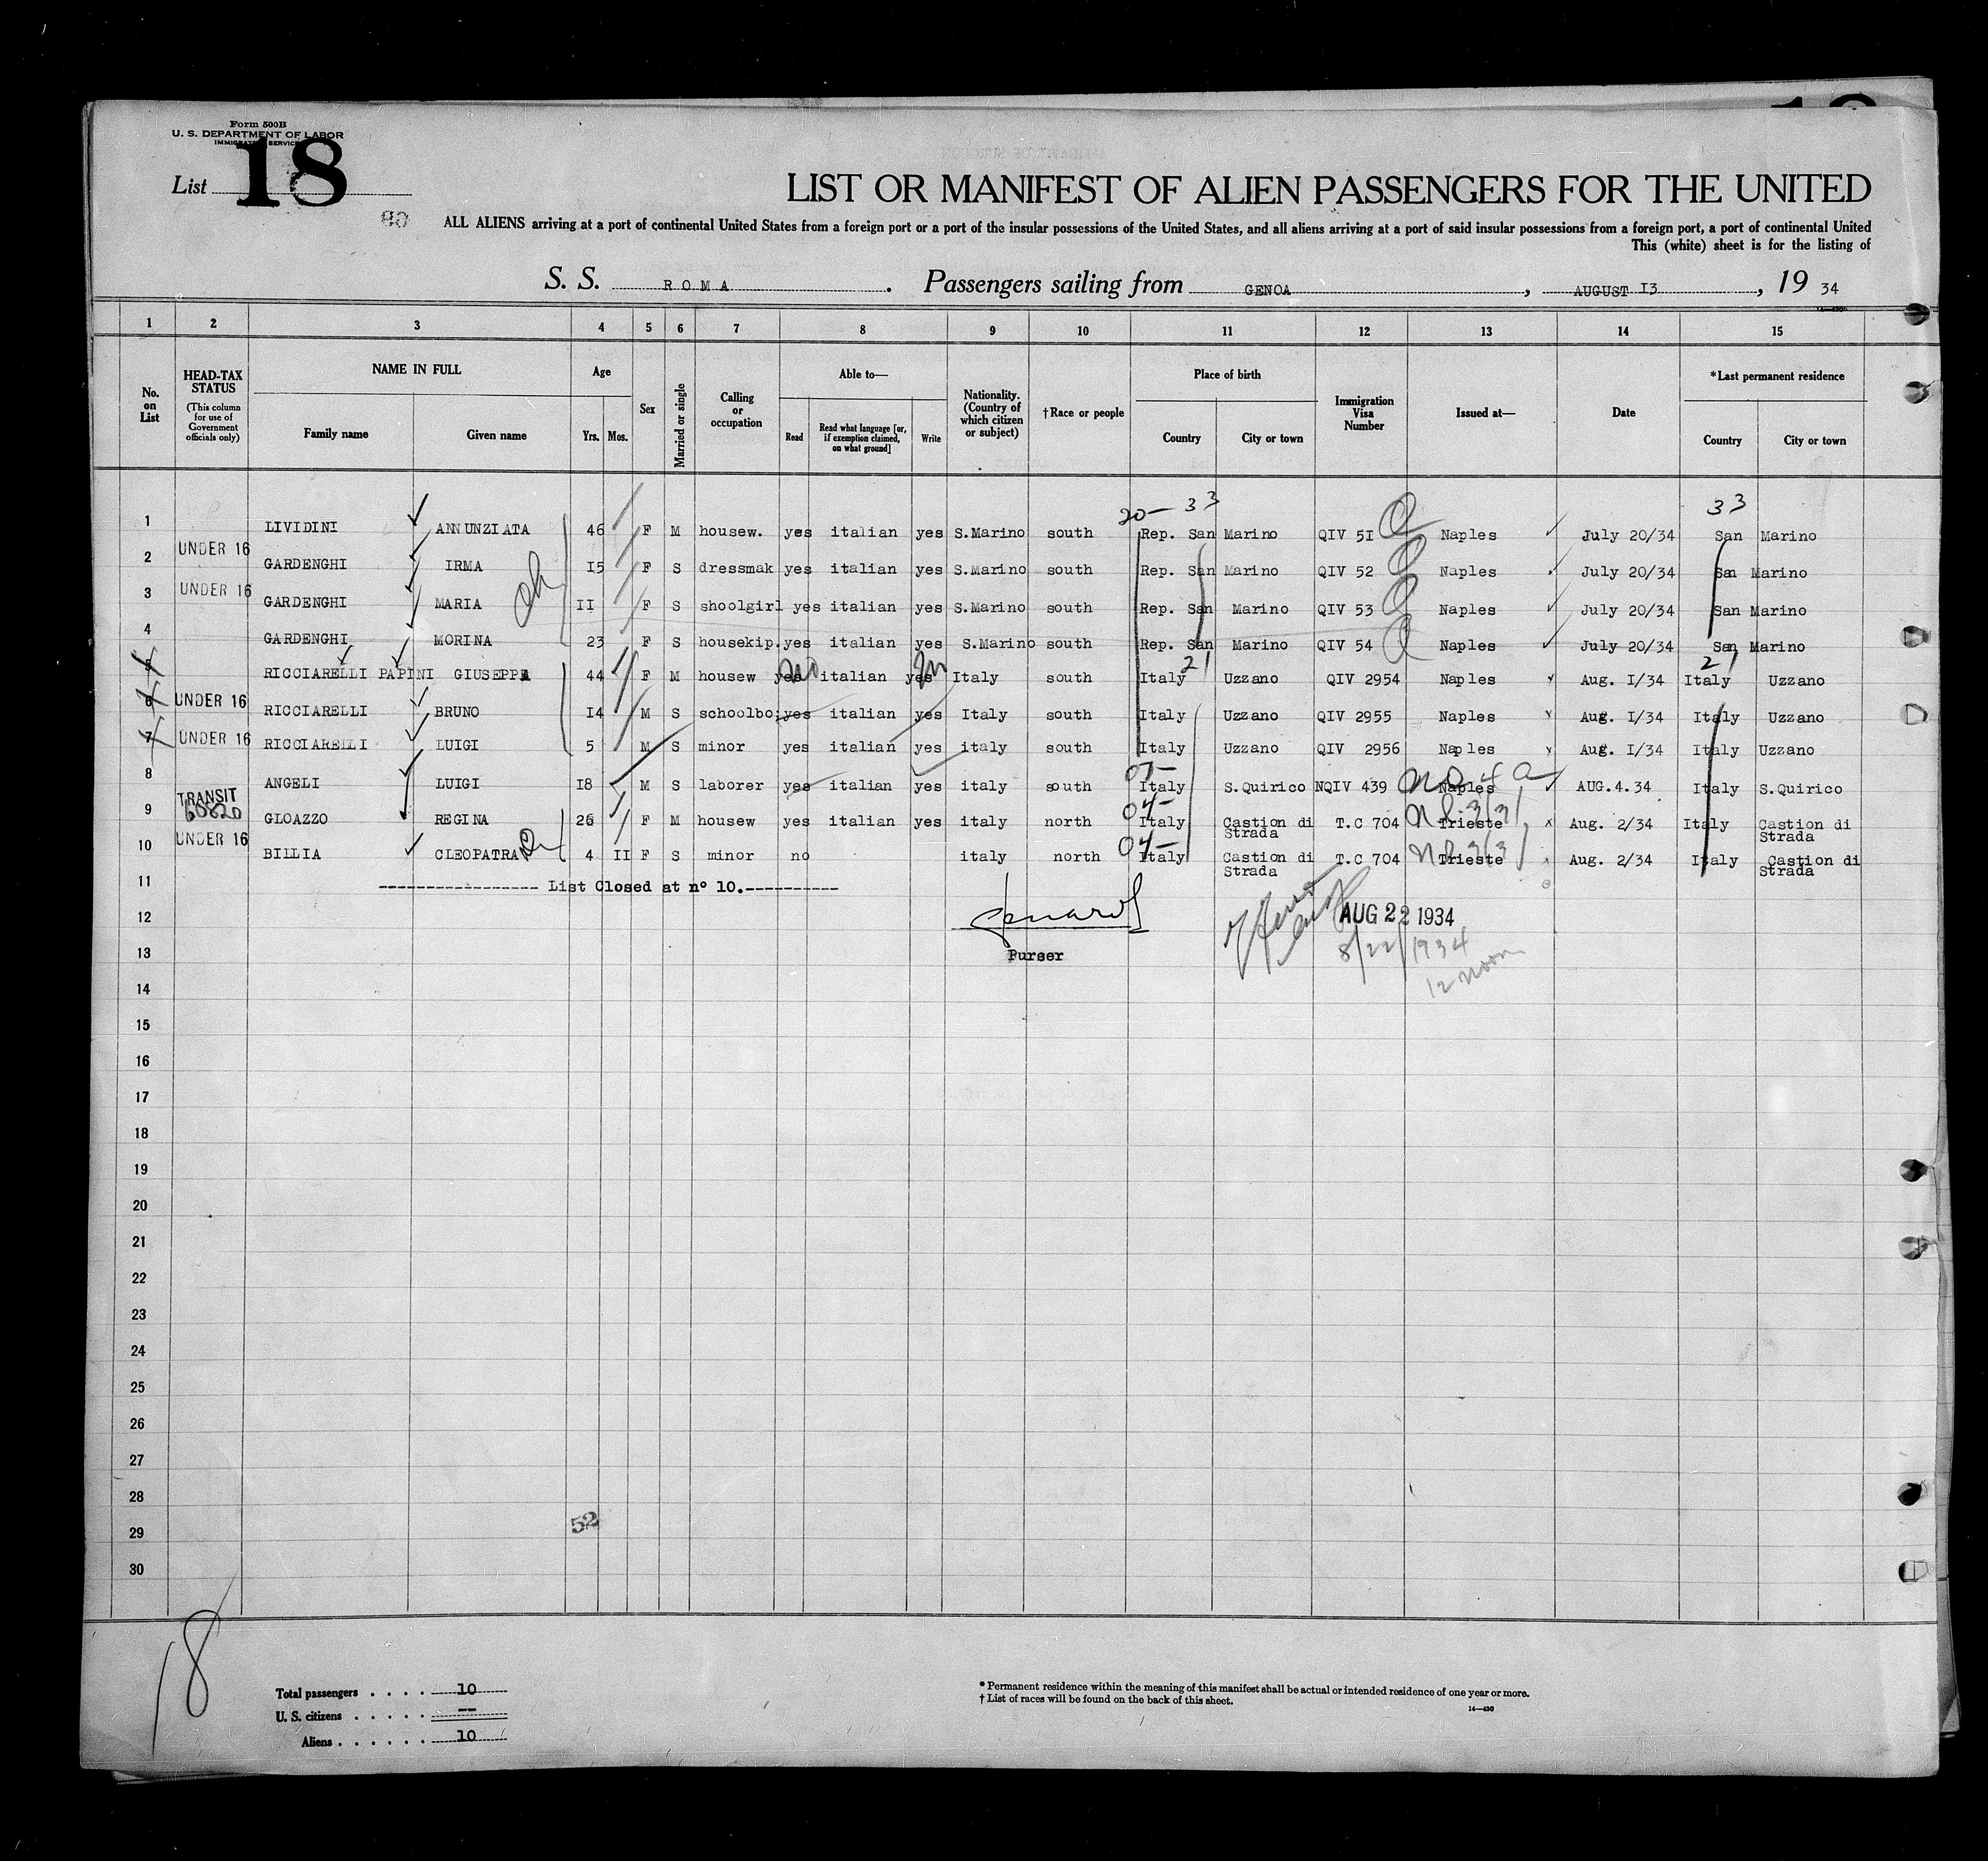 Form 500B
U. S. DEPARTMENT OF LABOR
IMMIGRATION SERVICE
List 18
LIST OR MANIFEST OF ALIEN PASSENGERS FOR THE UNITED
ALL ALIENS arriving at a port of continental United States from a foreign port or a port of the insular possessions of the United States, and all aliens arriving at a port of said insular possessions from a foreign port, a port of continental United
This (white) sheet is for the listing of
S. S. ROMA. Passengers sailing from GENOA, AUGUST I3, 19 34
1 2 3 4 5 6 7 8 9 10 11 12 13 14 15
No. on List HEAD-TAX STATUS (This column for use of Government officials only) NAME IN FULL Family name Given name Age Yrs. Mos. Sex Married or single Calling or occupation Able to— Read Read what language [or, if exemption claimed, on what ground] Write Nationality. (Country of which citizen or subject) †Race or people Place of birth Country City or town Immigration Visa Number Issued at— Date *Last permanent residence Country City or town
20- 33 33
1 LIVIDINI ANNUNZIATA 46 F M housew. yes italian yes S.Marino south Rep. San Marino QIV 5I Naples July 20/34 San Marino
2 UNDER 16 GARDENGHI IRMA I5 F S dressmak yes italian yes S.Marino south Rep. San Marino QIV 52 Naples July 20/34 San Marino
3 UNDER 16 GARDENGHI MARIA II F S shoolgirl yes italian yes S.Marino south Rep. San Marino QIV 53 Naples July 20/34 San Marino
4 GARDENGHI MORINA 23 F S housekip. yes italian yes S.Marino south Rep. San Marino QIV 54 Naples July 20/34 San Marino
5 RICCIARELLI PAPINI GIUSEPPA 44 F M housew yes no italian yes Italy south Italy 21 Uzzano QIV 2954 Naples Aug. I/34 Italy 21 Uzzano
6 UNDER 16 RICCIARELLI BRUNO I4 M S schoolbo: yes italian yes Italy south Italy Uzzano QIV 2955 Naples Aug. I/34 Italy Uzzano
7 UNDER 16 RICCIARELLI LUIGI 5 M S minor yes italian yes italy south Italy Uzzano QIV 2956 Naples Aug. I/34 Italy Uzzano
8 ANGELI LUIGI I8 M S laborer yes italian yes italy south Italy S.Quirico NQIV 439 Naples AUG.4.34 Italy S.Quirico
9 TRANSIT 60820 GLOAZZO REGINA 26 F M housew yes italian yes italy north 04- Italy Castion di Strada T.C 704 Trieste Aug. 2/34 Italy Castion di Strada
10 UNDER 16 BILLIA CLEOPATRA 4 II F S minor no italy north 04- Italy Castion di Strada T.C 704 Trieste Aug. 2/34 Italy Castion di Strada
11 ----------------- List Closed at n° 10.----------
12 AUG 22 1934
13 Purser 8/22/1934
12 noon
14
15
16
17
18
19
20
21
22
23
24
25
26
27
28
29 52
30
18
Total passengers . . . . 10
U. S. citizens . . . . . --
Aliens . . . . . . 10
* Permanent residence within the meaning of this manifest shall be actual or intended residence of one year or more.
† List of races will be found on the back of this sheet.
14—430